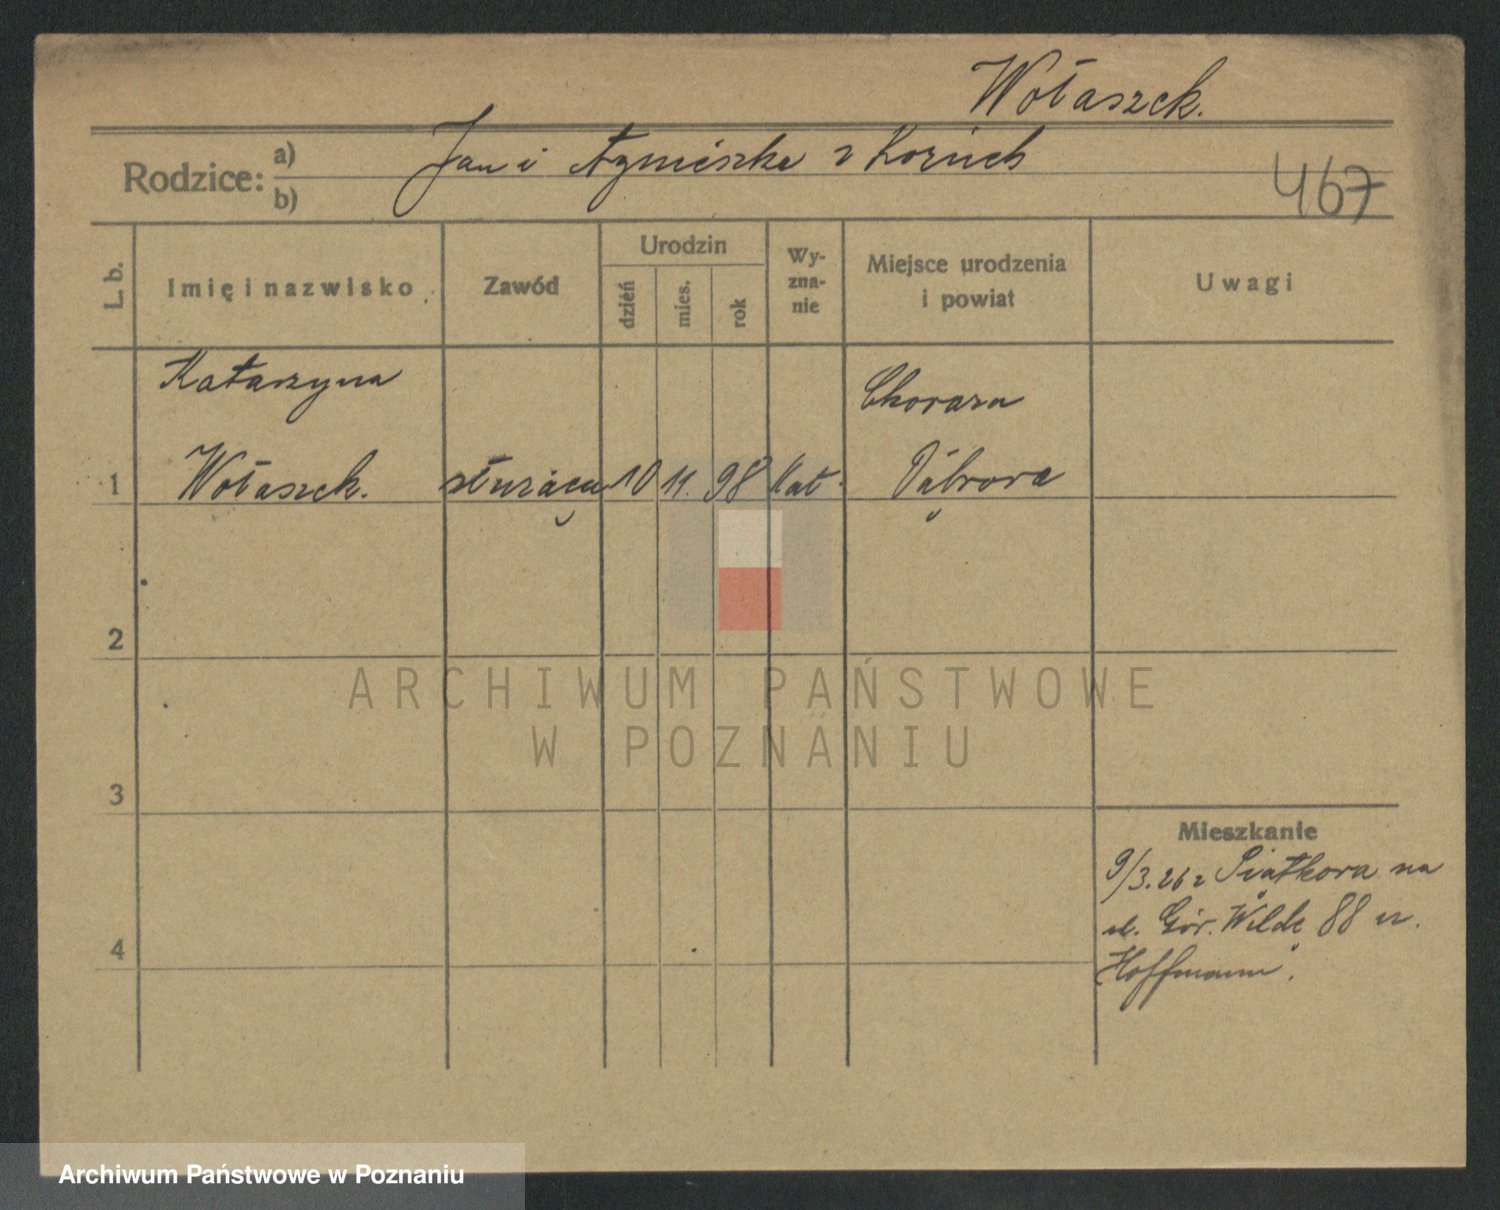 Wołaszek.
Rodzice: a) b)
Jan i Agnieszka z
467
L. b.
Imię i nazwisko
Zawód
Urodzin
dzień
mies.
rok
Wy-
zna-
nie
Miejsce urodzenia
i powiat
Uwagi
Katarzyna
1 Wołaszek. służąca 10 11. 98 kat.
2
3
4
Mieszkanie
9/3.26 z Piątkowa na
ul. Gór. Wildę 88 u.
Hoffmann.
ARCHIWUM PAŃSTWOWE
W POZNANIU
Archiwum Państwowe w Poznaniu